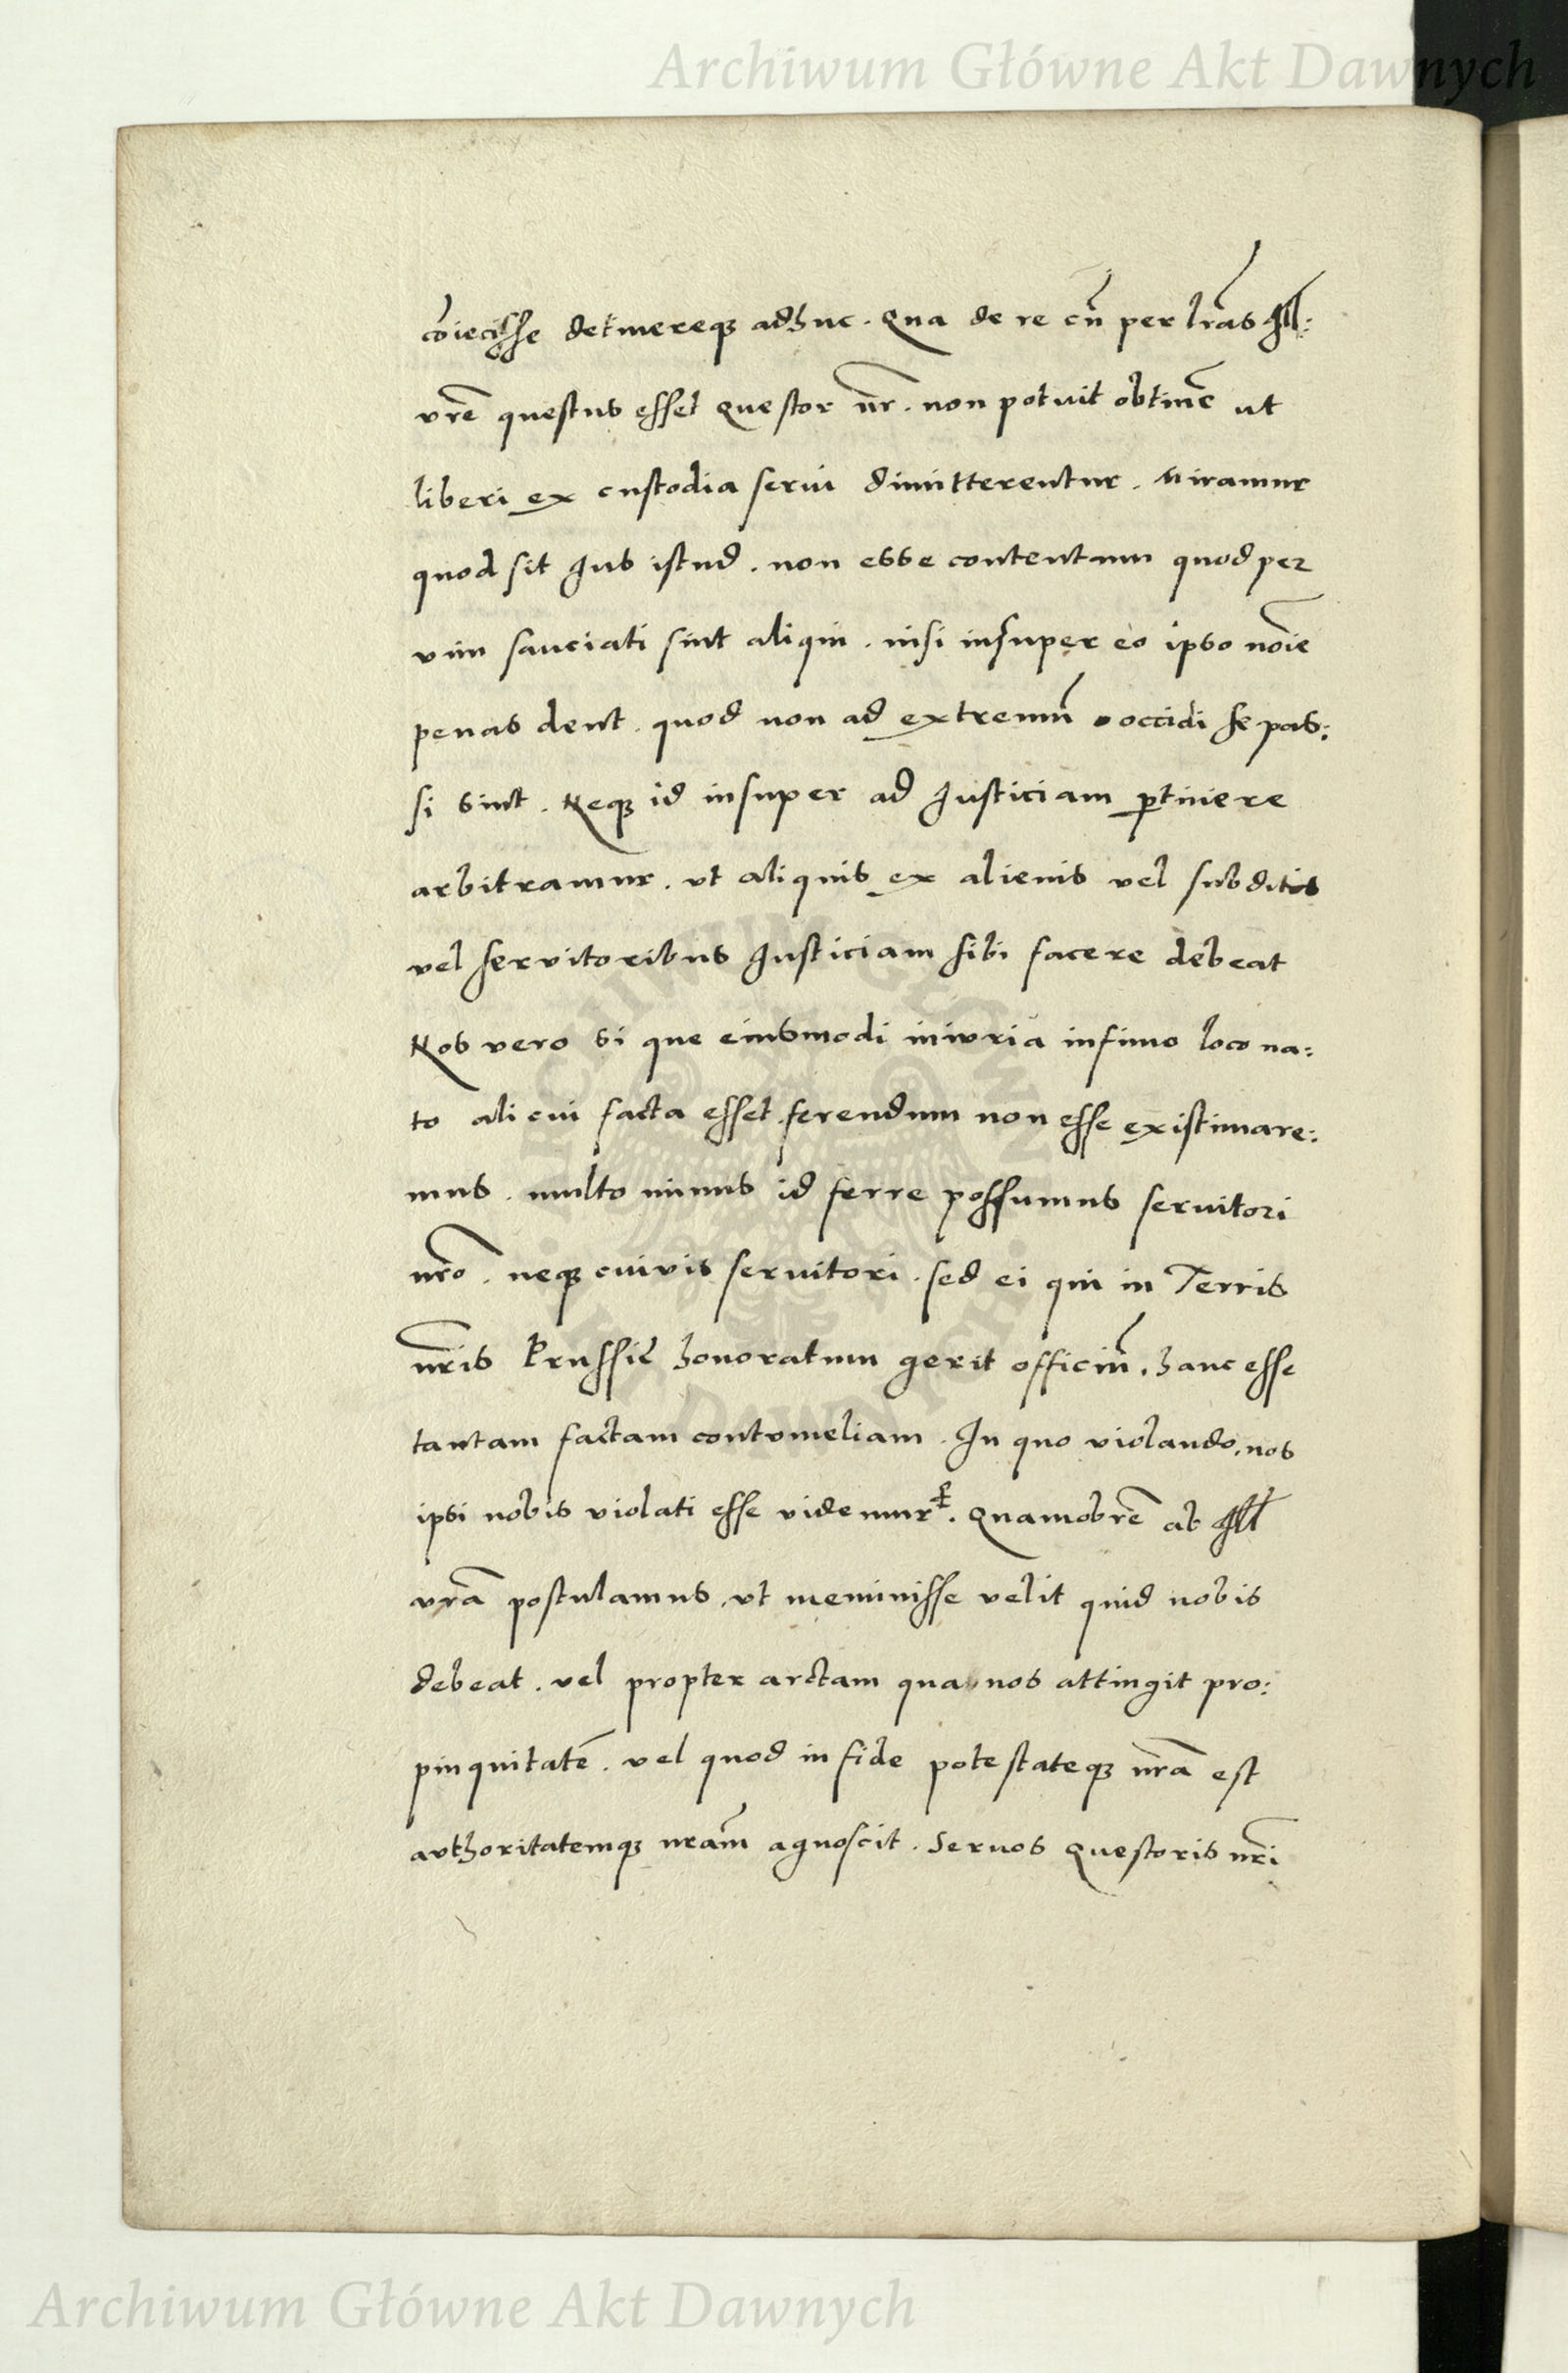 Archiwum Główne Akt Dawnych
cōiecisse detinereqꝫ adhuc. Qua de re cū per lr̄as Ill:
vrē questus esset Questor nr̄. non potuit obtinē ut
liberi ex custodia serui dimitterentur. Miramur
quod sit Ius istud. non esse contentum quod per
vim sauciati sint aliqui. nisi insuper eo ipso noīe
penas dent. quod non ad extremū occidi se pas:
si sint. Neqꝫ id insuper ad Iusticiam ꝑtinere
arbitramur. vt aliquis ex alienis vel subditis
vel servitoribus Iusticiam sibi facere debeat
Nos vero si que eiusmodi iniuria infimo loco na:
to alicui facta esset ferendum non esse existimare:
mus. multo minus id ferre possumus servitori
nr̄o. neqꝫ cuivis servitori. sed ei qui in Terris
nr̄is Prussie honoratum gerit officiū. hanc esse
tantam factam contumeliam. In quo violando, nos
ipsi nobis violati esse videmur. Quamobrē ab Ill
vrā postulamus, vt meminisse velit quid nobis
debeat. vel propter arctam qua nos attingit pro:
pinquitatē. vel quod in fide potestateqꝫ nr̄a est
authoritatemqꝫ nr̄am agnoscit. Servos Questoris nr̄i
Archiwum Główne Akt Dawnych